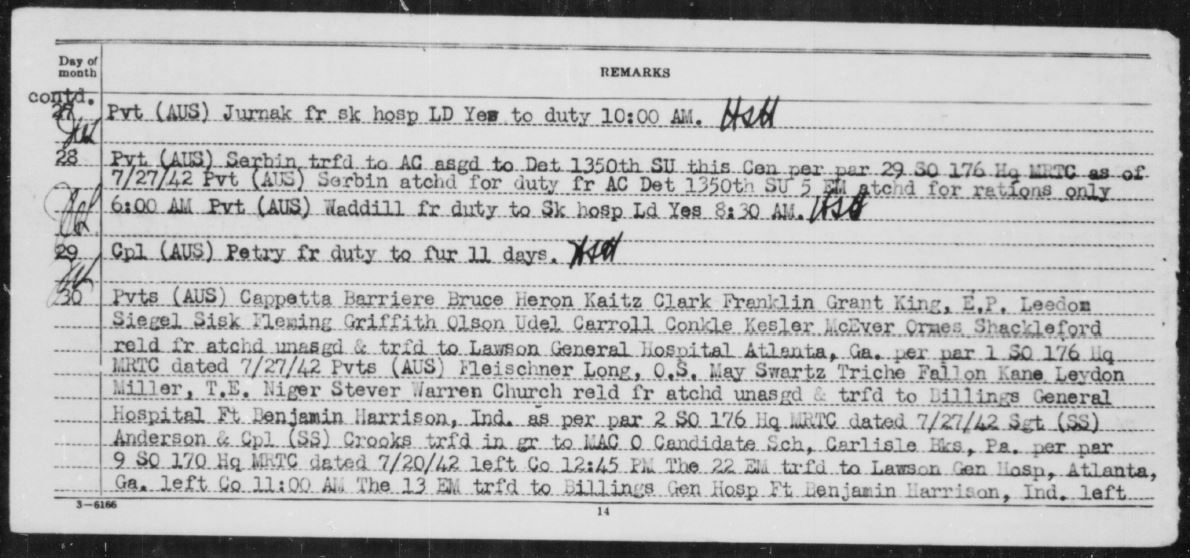 Day of
month
REMARKS
contd.
27 Pvt (AUS) Jurnak fr sk hosp LD Yes to duty 10:00 AM. HSH
28 Pvt (AUS) Serbin trfd to AC asgd to Det 1350th SU this Cen per par 29 SO 176 Hq MRTC as of
7/27/42 Pvt (AUS) Serbin atchd for duty fr AC Det 1350th SU 5 EM atchd for rations only
6:00 AM Pvt (AUS) Waddill fr duty to Sk hosp Ld Yes 8:30 AM. HSH
29 Cpl (AUS) Petry fr duty to fur 11 days. HSH
30 Pvts (AUS) Cappetta Barriere Bruce Heron Kaitz Clark Franklin Grant King, E.P. Leedom
Siegel Sisk Fleming Griffith Olson Udel Carroll Conkle Kesler McEver Ormes Shackleford
reld fr atchd unasgd & trfd to Lawson General Hospital Atlanta, Ga. per par 1 SO 176 Hq
MRTC dated 7/27/42 Pvts (AUS) Fleischner Long, O.S. May Swartz Triche Fallon Kane Leydon
Miller, T.E. Niger Stever Warren Church reld fr atchd unasgd & trfd to Billings General
Hospital Ft Benjamin Harrison, Ind. as per par 2 SO 176 Hq MRTC dated 7/27/42 Sgt (SS)
Anderson & Cpl (SS) Crooks trfd in gr to MAC O Candidate Sch, Carlisle Bks, Pa. per par
9 SO 170 Hq MRTC dated 7/20/42 left Co 12:45 PM The 22 EM trfd to Lawson Gen Hosp, Atlanta,
Ga. left Co 11:00 AM The 13 EM trfd to Billings Gen Hosp Ft Benjamin Harrison, Ind. left
3—6166
14